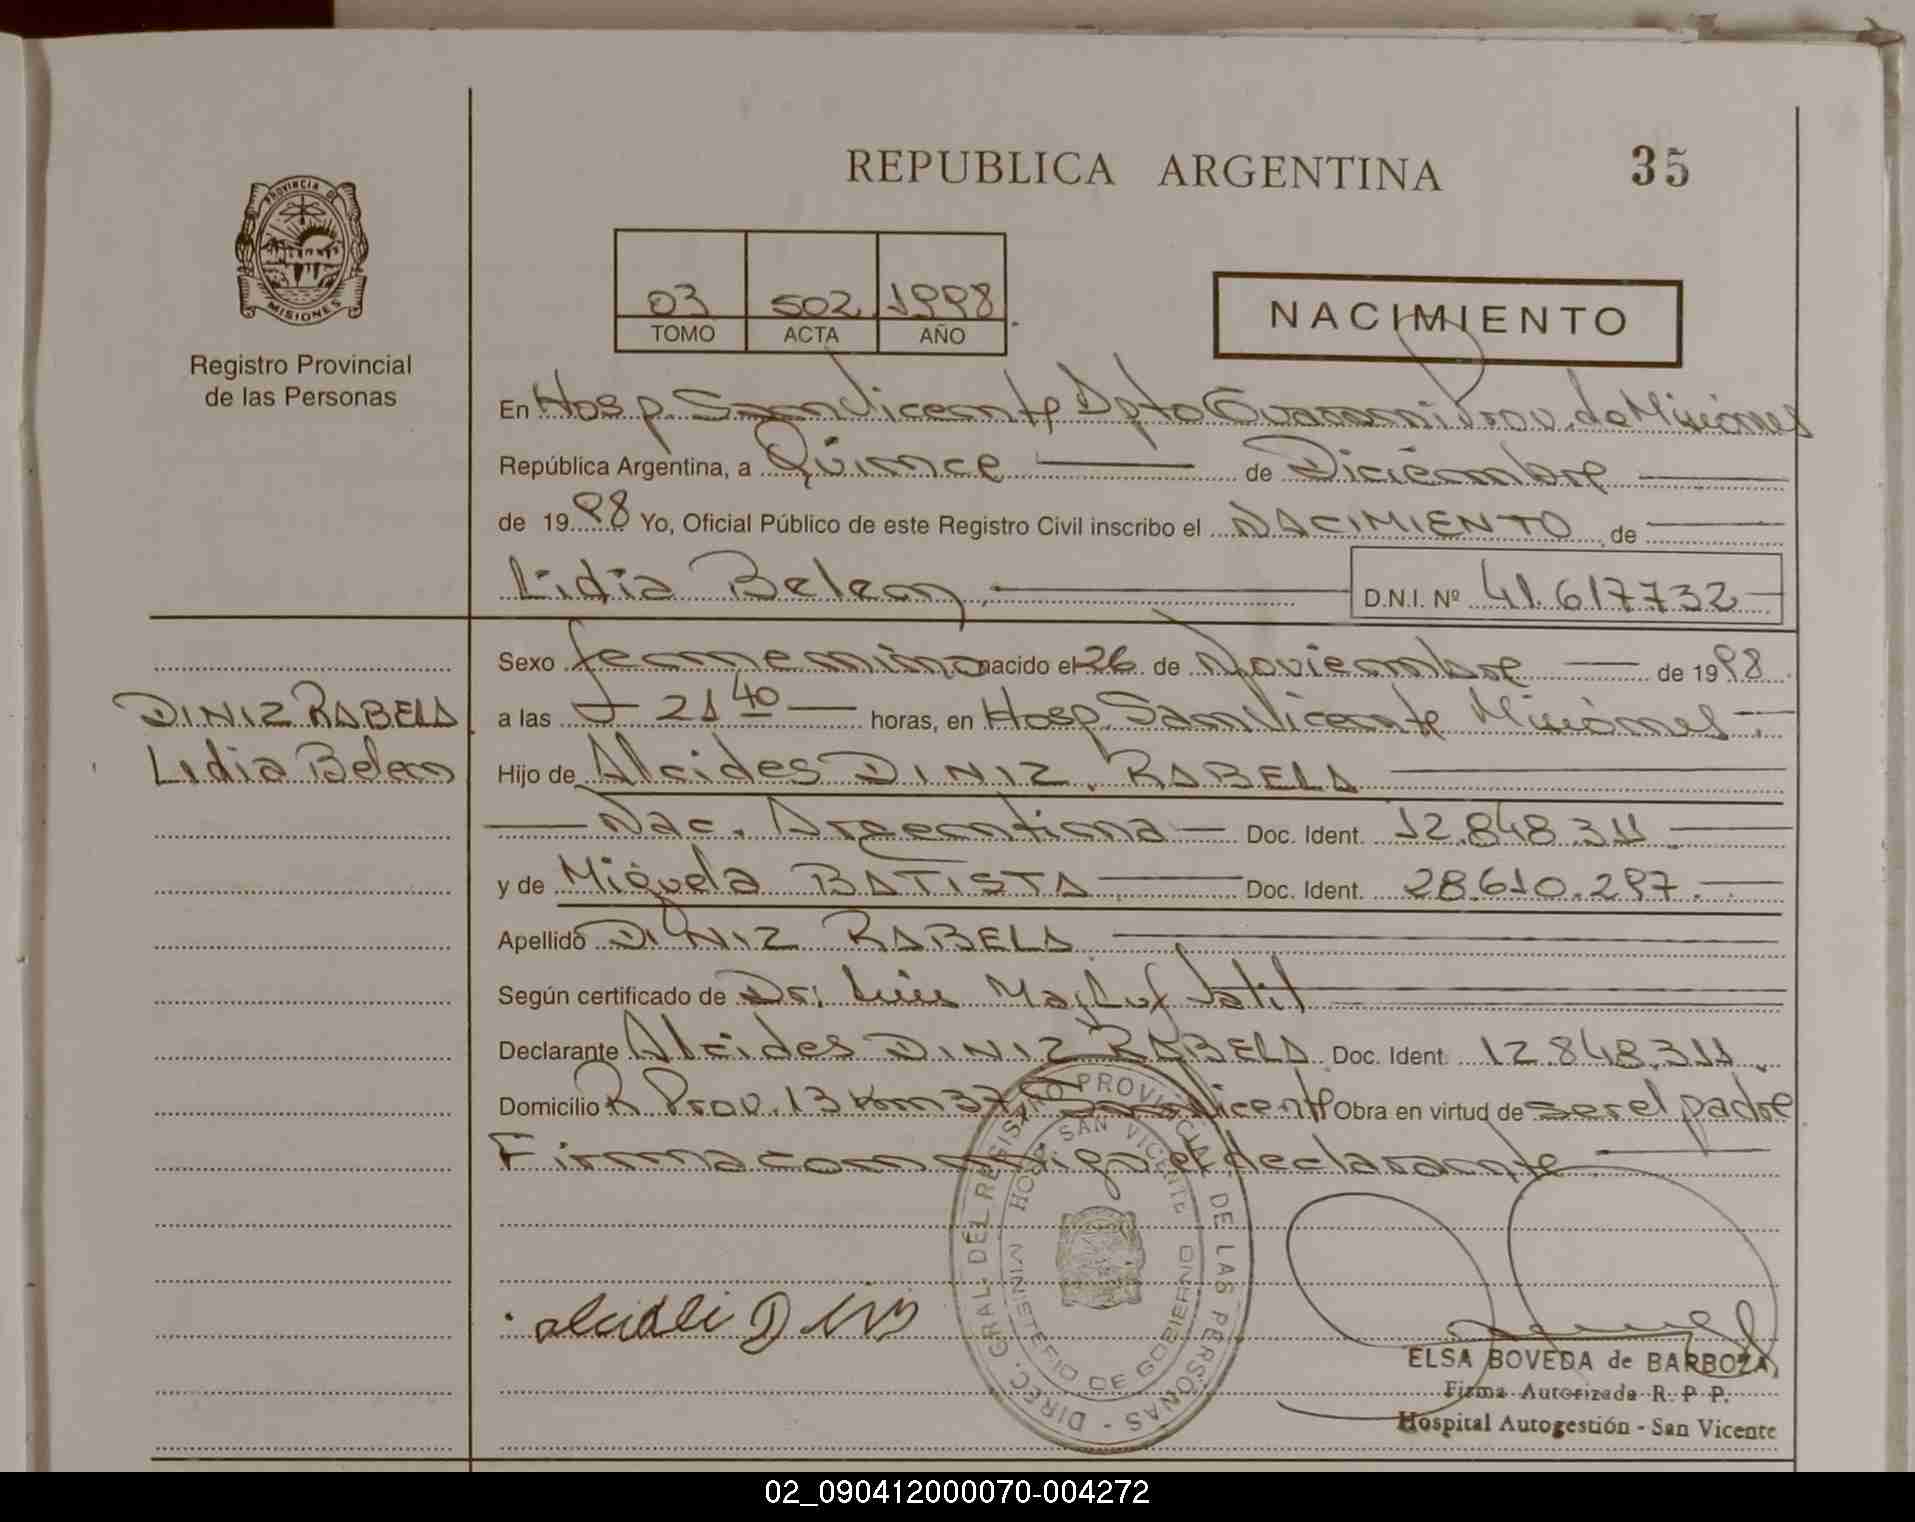 REPUBLICA ARGENTINA
35
PROVINCIA DE
MISIONES
Registro Provincial
de las Personas
03 502 1998
TOMO ACTA AÑO
NACIMIENTO
En Hosp. San Vicente Dpto Guarani Prov. de Misiones
República Argentina, a Quince de Diciembre
de 1998 Yo, Oficial Público de este Registro Civil inscribo el NACIMIENTO de
Lidia Belen D.N.I. Nº 41.617732
Sexo femenino nacido el 26 de Noviembre de 1998
DINIZ RABELA
Lidia Belen
a las 21 40 horas, en Hosp. San Vicente Misiones
Hijo de Alcides DINIZ RABELA
Nac. Argentina Doc. Ident. 12.848.311
y de Miguela BATISTA Doc. Ident. 28.610.297.
Apellido DINIZ RABELA
Según certificado de Dr. Luis
Declarante Alcides DINIZ RABELA Doc. Ident. 12.848.311
Domicilio R. Prov. 13 Km 37 San Vicente Obra en virtud de ser el padre
Firma conmigo el declarante
DIREC. GRAL. DEL REGISTRO PROVINCIAL DE LAS PERSONAS -
HOSP. SAN VICENTE
MINISTERIO DE GOBIERNO
ELSA BOVEDA de BARBOZA
Firma Autorizada R. P. P.
Hospital Autogestión - San Vicente
02_090412000070-004272